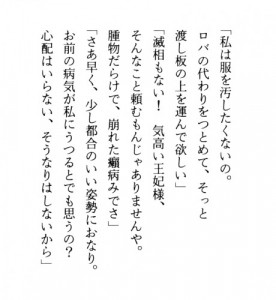 「私は服を汚したくないの。
ロバの代わりをつとめて、そっと
渡し板の上を運んで欲しい」
「滅相もない！　気高い王妃様、
そんなこと頼むもんじゃありませんや。
腫物だらけで、崩れた癩病みでさ」
「さあ早く、少し都合のいい姿勢におなり。
お前の病気が私にうつるとでも思うの？
心配はいらない、そうなりはしないから」